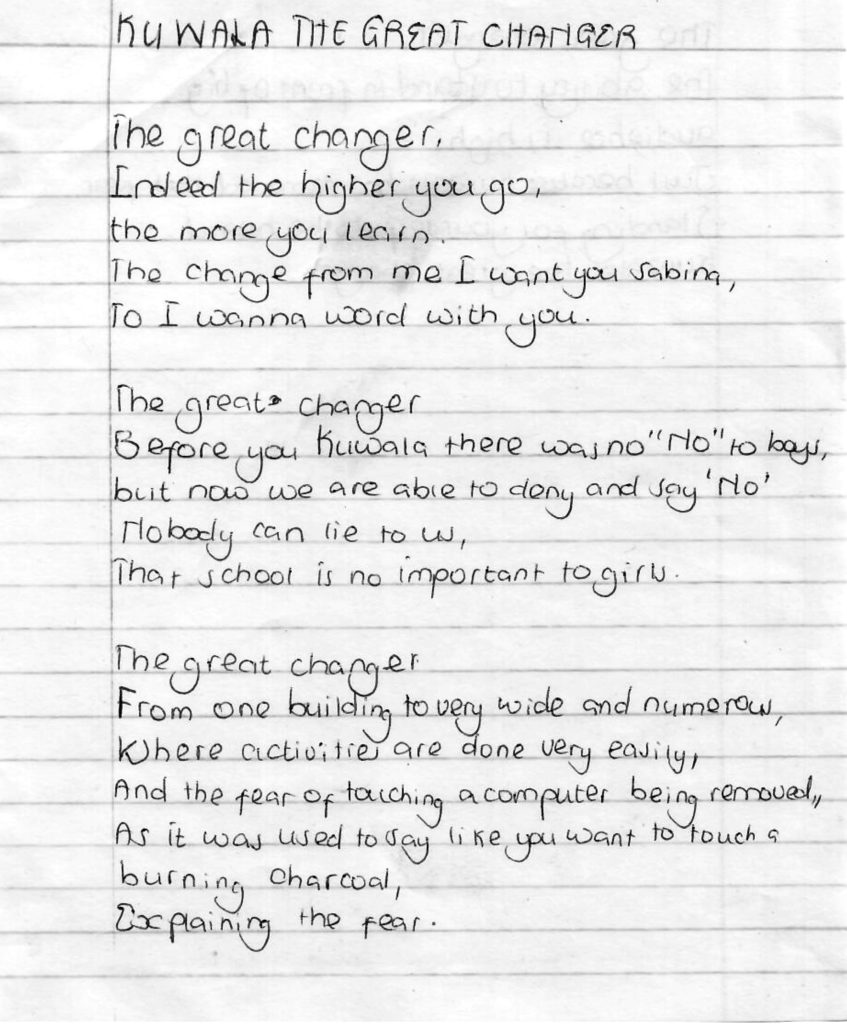 KUWALA THE GREAT CHANGER
The great changer,
Indeed the higher you go,
the more you learn.
The change from me I want you sabina,
To I wanna word with you.
The great changer
Before you Kuwala there was no "No" to boys,
but now we are able to deny and say 'No'
Nobody can lie to us,
That school is no important to girls.
The great changer
From one building to very wide and numerous,
Where activities are done very easily,
And the fear of touching a computer being removed,,
As it was used to say like you want to touch a
burning charcoal,
Explaining the fear.